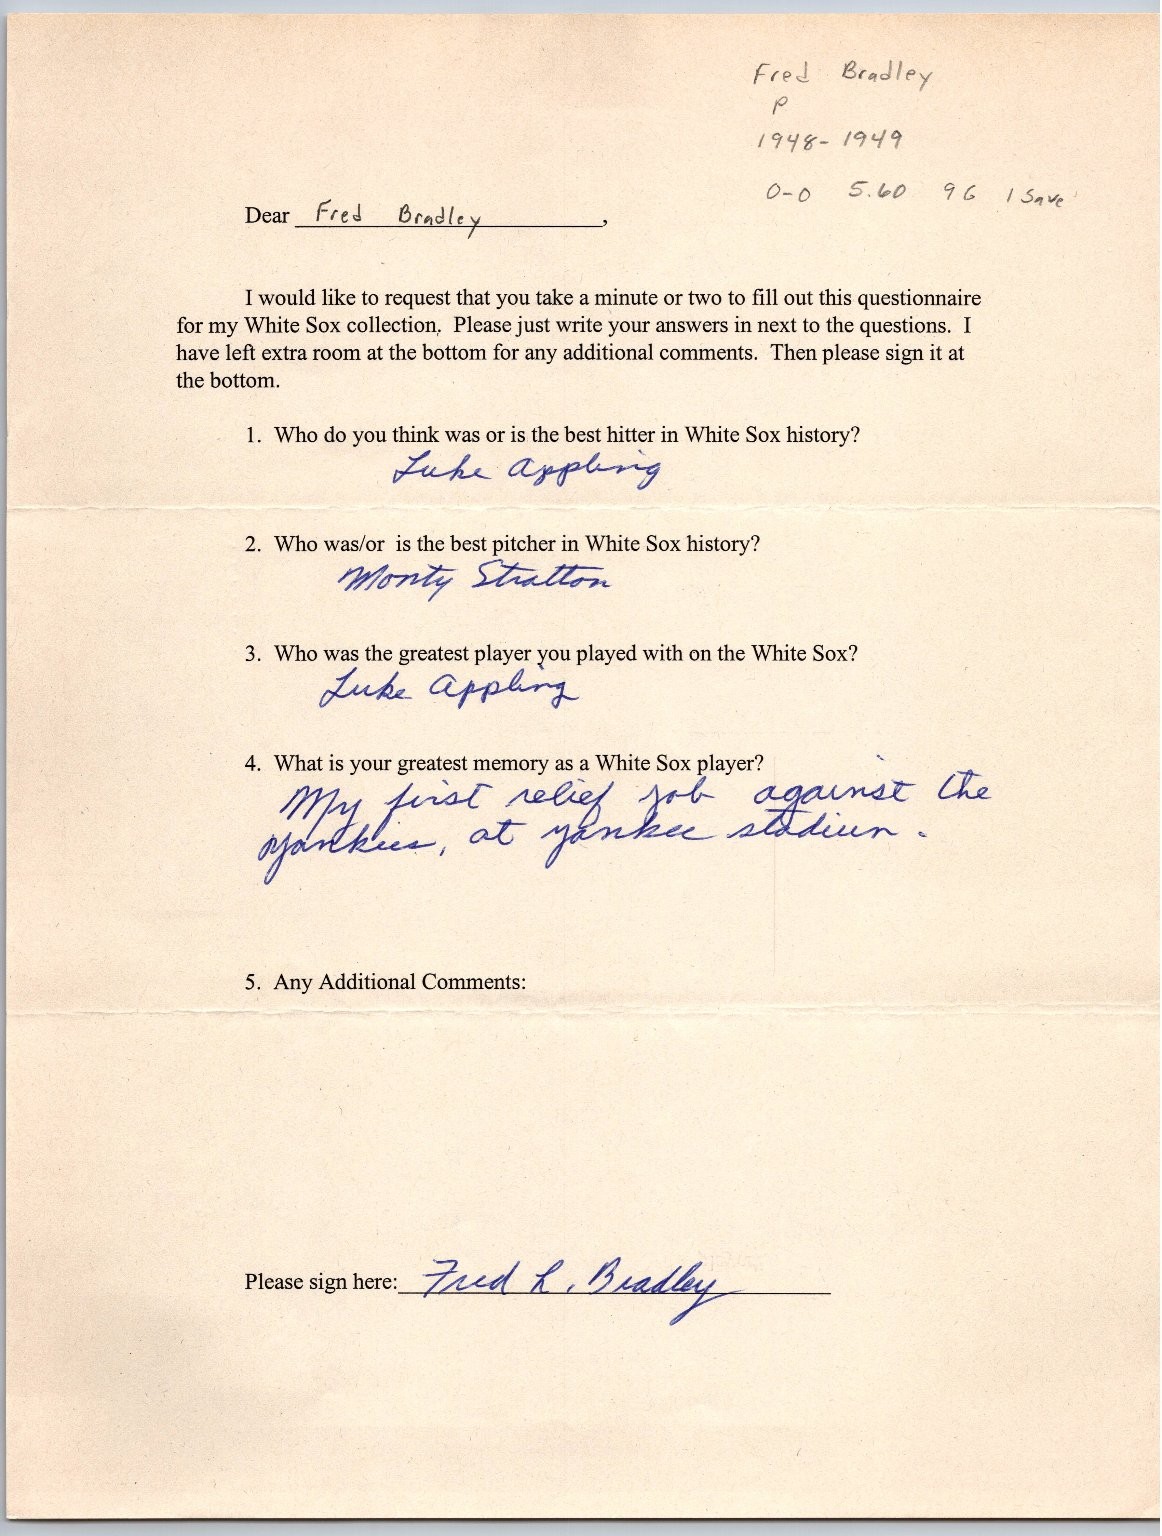 Fred Bradley
P
1948-1949
0-0 5.60 9G 1 Save
Dear Fred Bradley,
I would like to request that you take a minute or two to fill out this questionnaire
for my White Sox collection. Please just write your answers in next to the questions. I
have left extra room at the bottom for any additional comments. Then please sign it at
the bottom.
1. Who do you think was or is the best hitter in White Sox history?
Luke Appling
2. Who was/or is the best pitcher in White Sox history?
Monty Stratton
3. Who was the greatest player you played with on the White Sox?
Luke Appling
4. What is your greatest memory as a White Sox player?
My first relief job against the
Yankies, at yankee stadium.
5. Any Additional Comments:
Please sign here: Fred L. Bradley